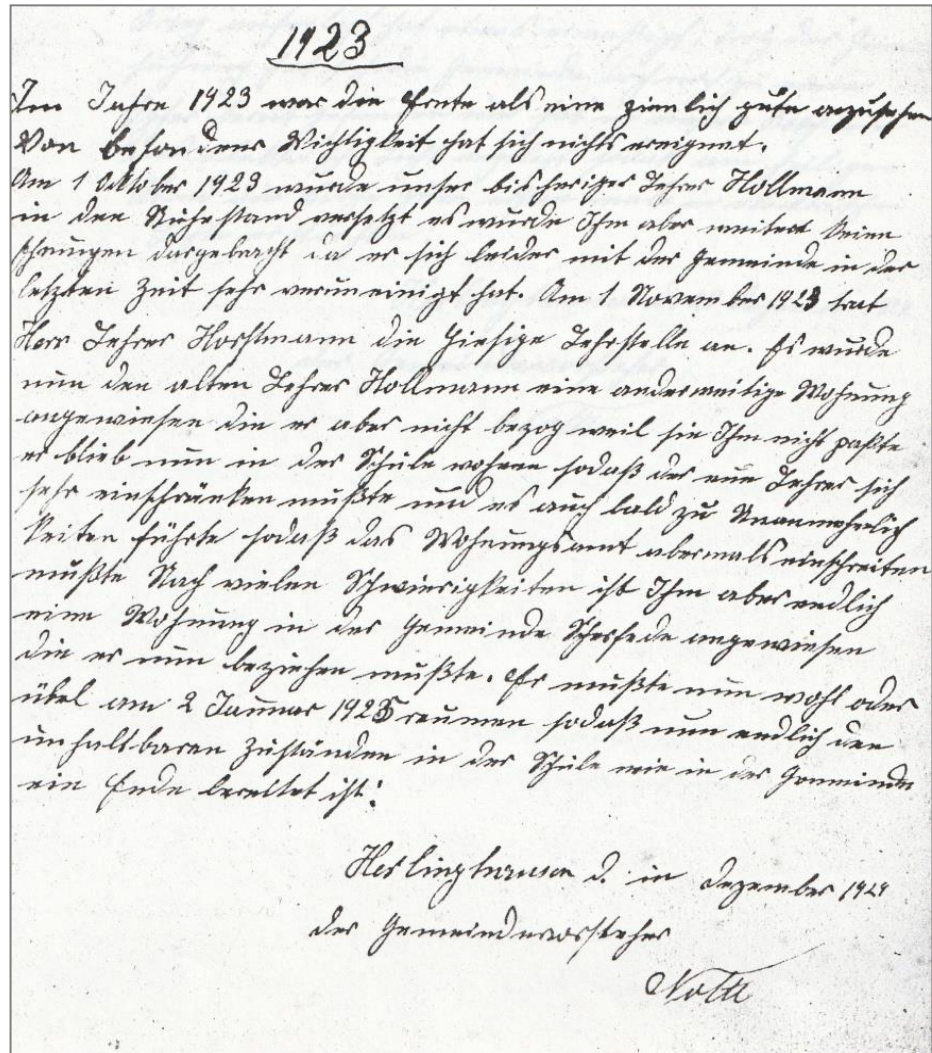 1923
Im Jahre 1923 war die Ernte als eine ziemlich gute anzusehen
Von besonderer Wichtigkeit hat sich nichts ereignet.
Am 1 Oktober 1923 wurde unser bisheriger Lehrer Hollmann
in den Ruhestand versetzt es wurde Ihm aber weiter keine
Ehrungen dargebracht da er sich leider mit der Gemeinde in der
letzten Zeit sehr veruneinigt hat. Am 1 November 1923 trat
Herr Lehrer Horstmann die hiesige Lehrstelle an. Es wurde
nun den alten Lehrer Hollmann eine anderweitige Wohnung
angewiesen die er aber nicht bezog weil sie Ihm nicht paßte
er blieb nun in der Schule wohnen sodaß der neue Lehrer sich
sehr einschränken mußte und es auch bald zu Unannehmlich
keiten führte sodaß das Wohnungsamt abermals einschreiten
mußte Nach vielen Schwierigkeiten ist Ihm aber endlich
eine Wohnung in der Gemeinde Scherfede angewiesen
die er nun beziehen mußte. Er mußte nun wohl oder
übel am 2 Januar 1925 reumen sodaß nun endlich den
unhaltbaren Zuständen in der Schule wie in der Gemeinde
ein Ende bereitet ist.
Herlinghausen d. in Dezember 1924
der Gemeindevorsteher
Nolte